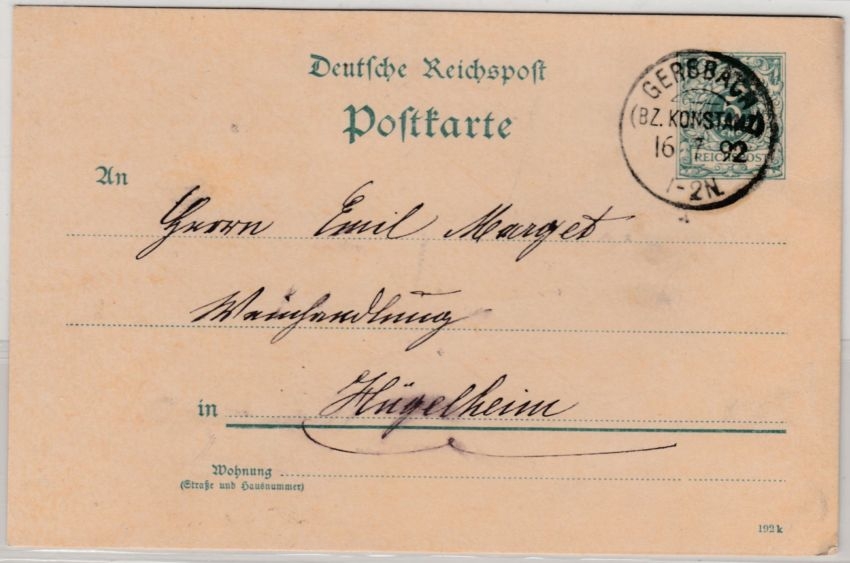 Deutsche Reichspost
Postkarte
GERSBACH
(BZ. KONSTANZ)
16 7 92
1-2N.
REICHSPOST
An
Herrn Emil Marget
Weinhandlung
in Hügelheim
Wohnung
(Straße und Hausnummer)
192 k